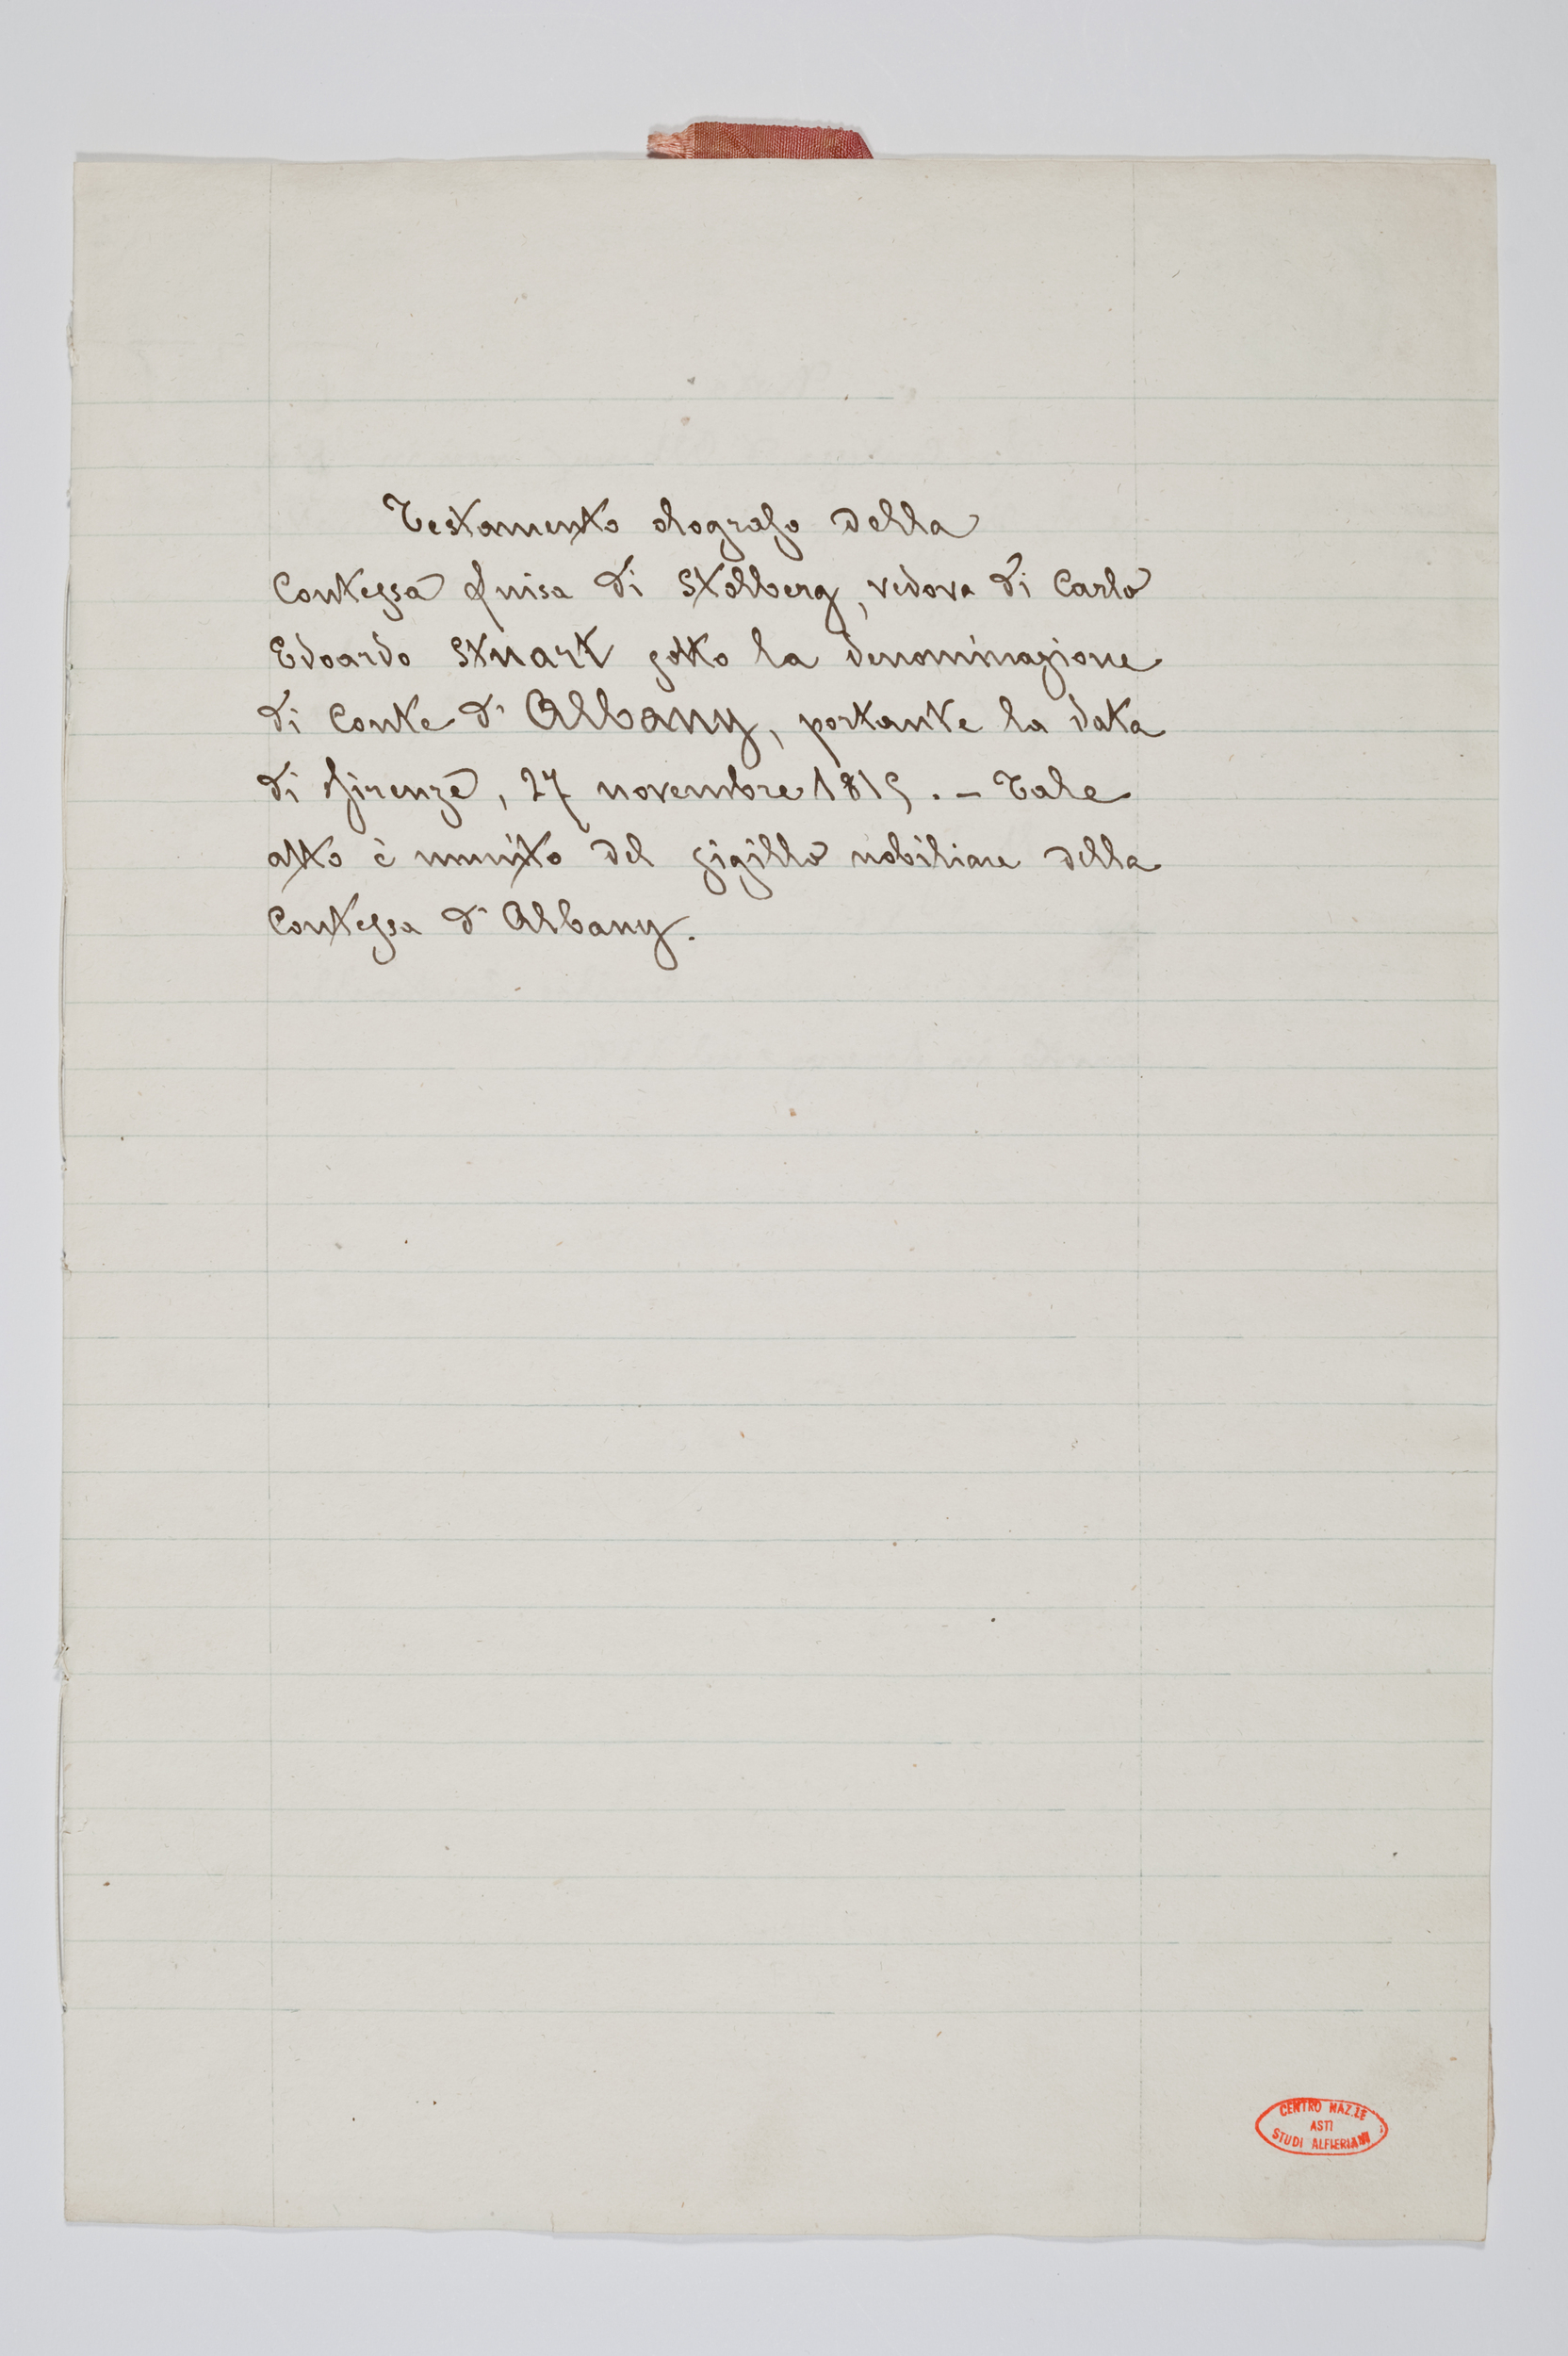 Testamento olografo della
Contessa Luisa di Stolberg, vedova di Carlo
Edoardo Stuart sotto la denominazione
di Conte d'Albany, portante la data
di Firenze, 27 novembre 1815. - Tale
atto è munito del sigillo nobiliare della
Contessa d'Albany.
CENTRO NAZ.LE
ASTI
STUDI ALFIERIANI